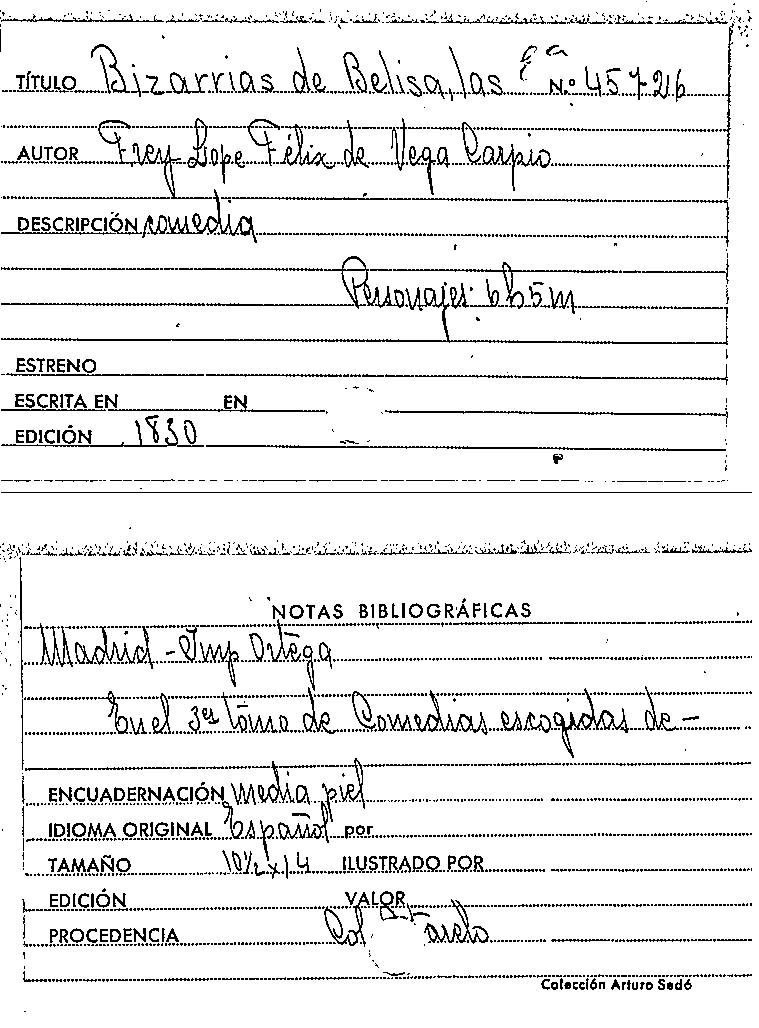 TÍTULO Bizarrias de Belisa, las Nº 45726
AUTOR Frey Lope Félix de Vega Carpio
DESCRIPCIÓN comedia
Personajes: 6h5m
ESTRENO
ESCRITA EN EN
EDICIÓN 1830
NOTAS BIBLIOGRÁFICAS
Madrid - Imp Ortega
En el 3er tomo de Comedias escogidas de -
ENCUADERNACIÓN media piel
IDIOMA ORIGINAL Español por
TAMAÑO 10½ x 14 ILUSTRADO POR
EDICIÓN VALOR
PROCEDENCIA Col
Colección Arturo Sedó